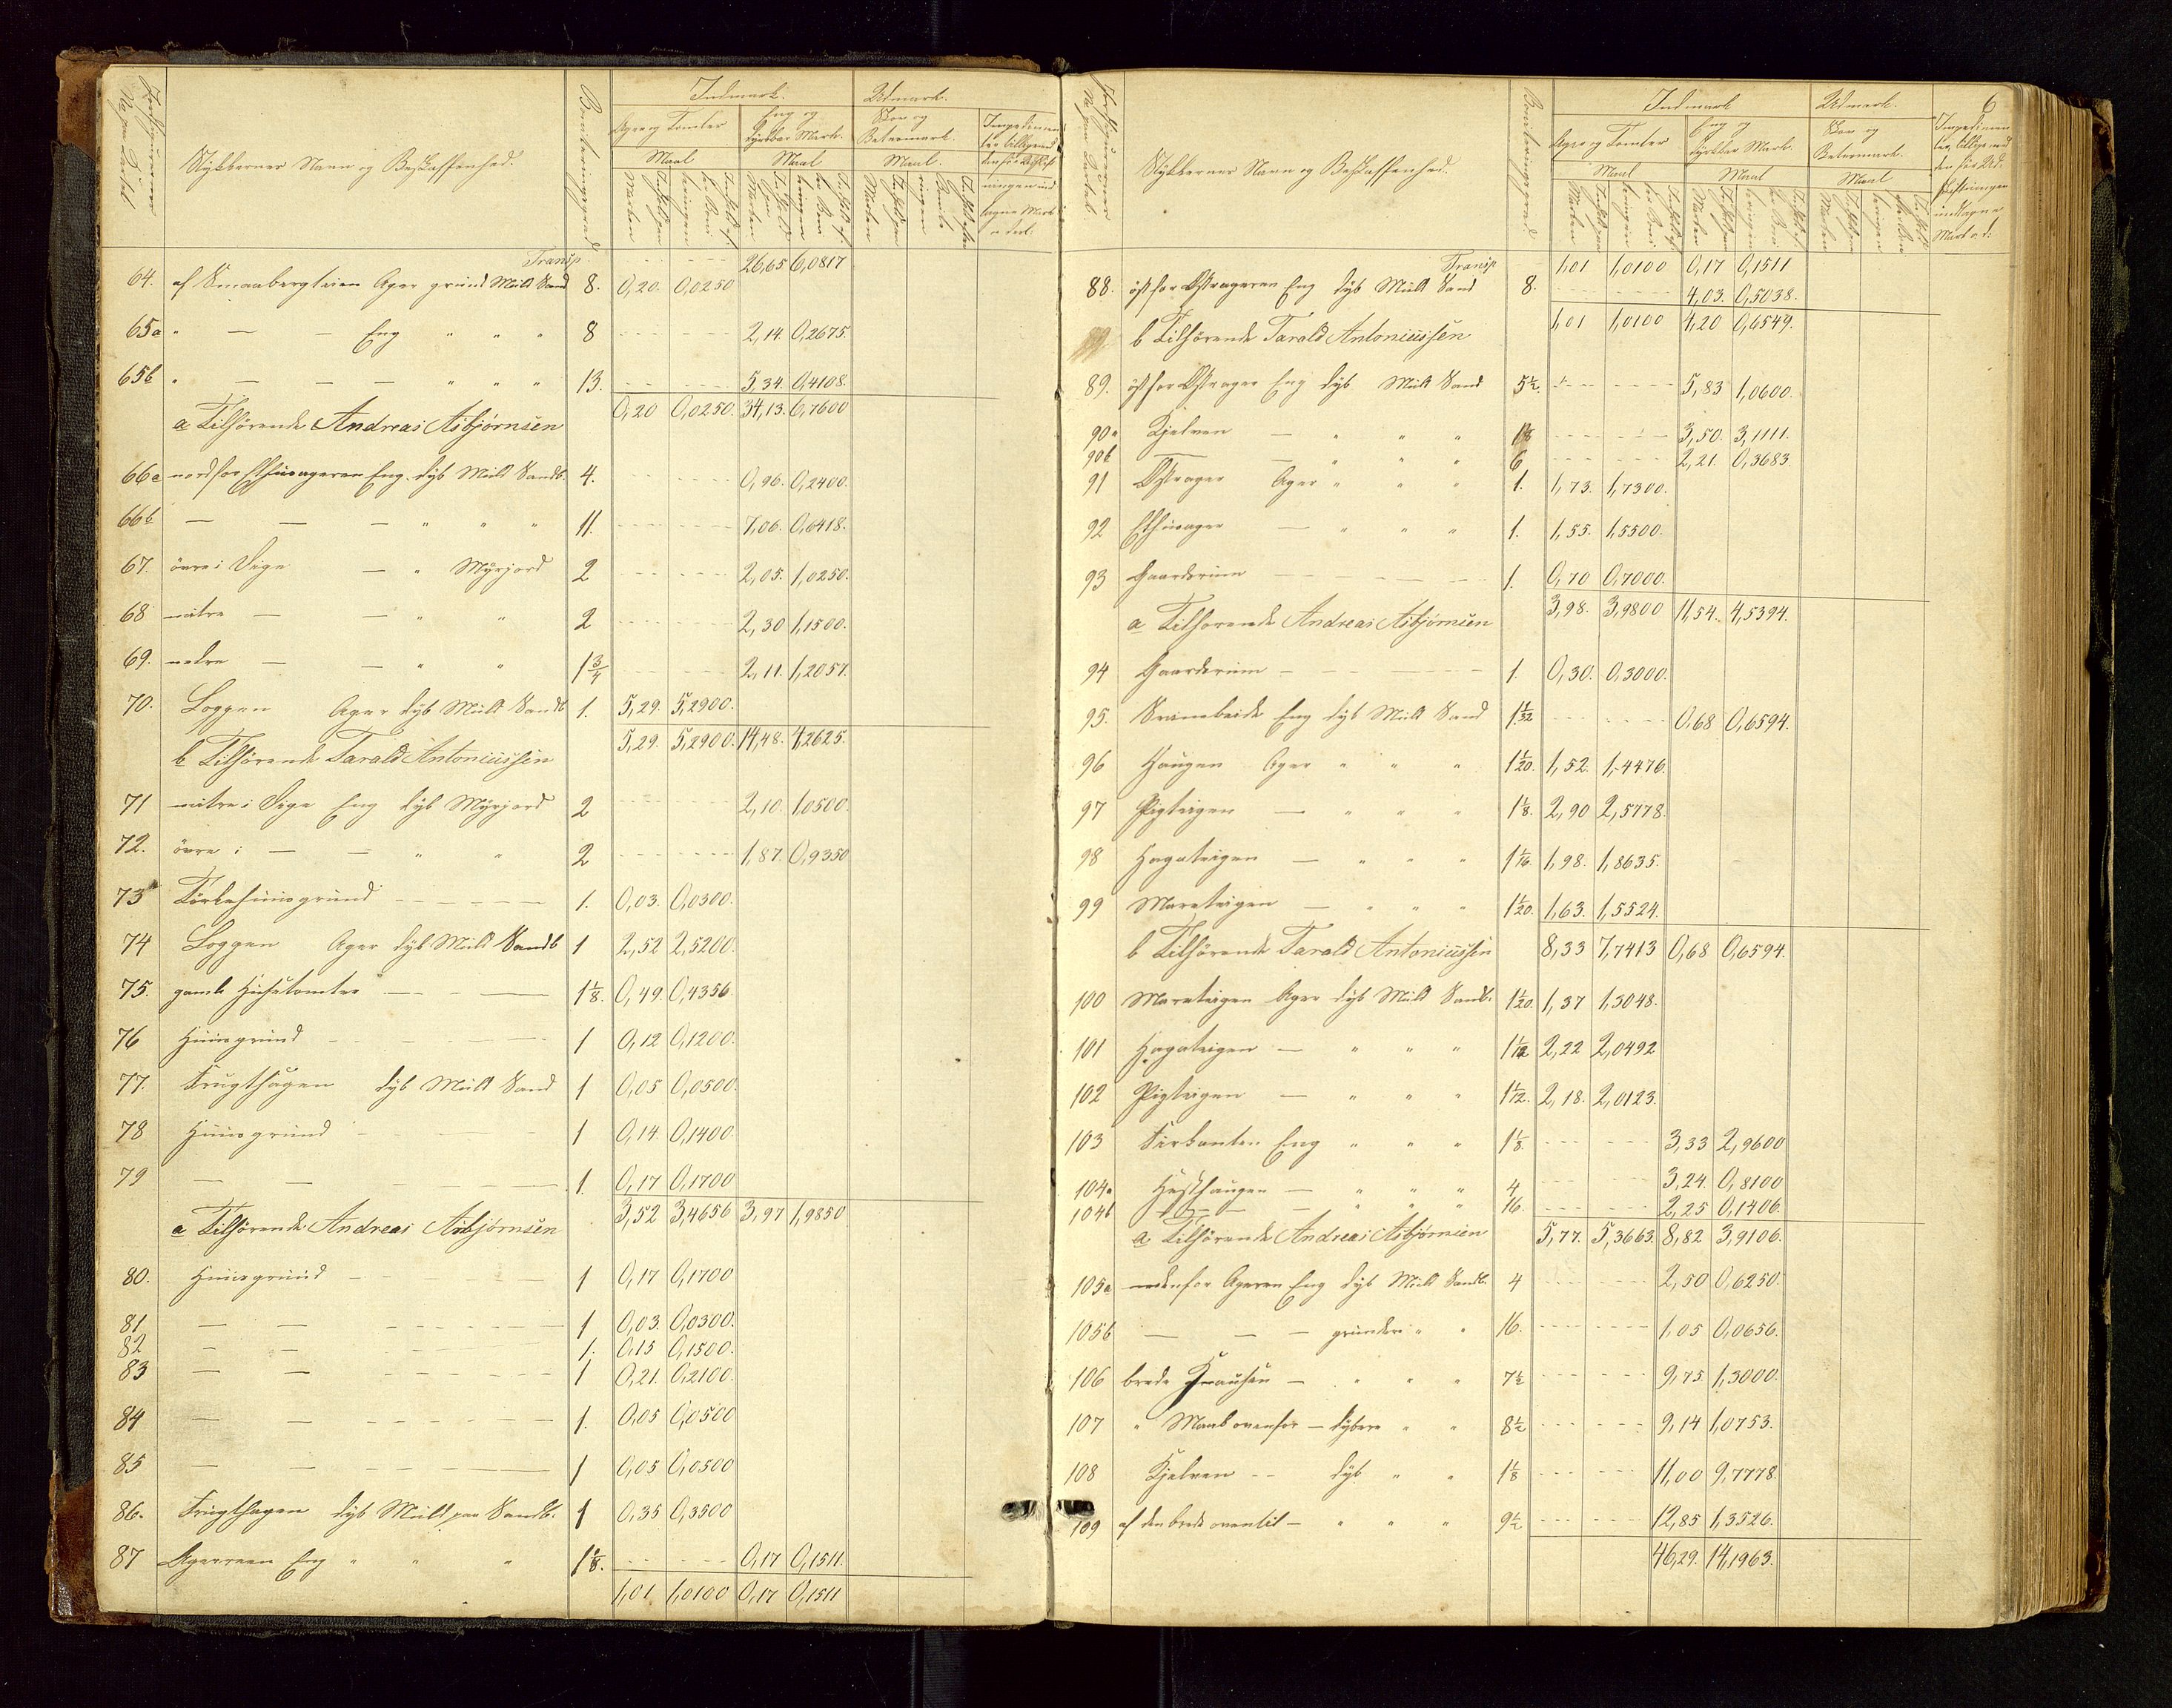 Stykkernes Navn og Beskaffenhed.
Boniteringsgrad
Indmark.
Udmark.
Ager og Tomter
Eng og dyrkbar Mark.
Maal
Maal
Maal.
Transp. 26,65 6,0817
64. af Smaabergteien Ager grund Muld Sand 8. 0,20. 0,0250
65a " — — Eng " " " 8 2,14. 0,2675.
65b " — — — " " " 13. 5,34. 0,4108.
0,20 0,0250. 34,13. 6,7600
a Tilhörende Andreas Asbjørnsen
66a nordfor Ager Eng dyb Muld Sandb. 4. 0,96. 0,2400.
66b — — — " " " 11. 7,06. 0,6418.
67. övre i Vige — " Myrjord 2 2,05. 1,0250.
68 mitre — — " " 2 2,30 1,1500.
69. nedre — — " " 1 3/4 2,11. 1,2057.
70. Loggen Ager dyb Muld Sandb 1. 5,29. 5,2900.
5,29. 5,2900. 14,48. 4,2625.
b Tilhörende Tarald Antoniussen
71 mitre i Vige Eng dyb Myrjord 2 2,10. 1,0500.
72. övre i — — " " 2 1,87. 0,9350
73 Törkehuusgrund 1. 0,03. 0,0300.
74 Loggen Ager dyb Muld Sandb 1 2,52 2,5200.
75. gamle Husetomter 1 1/8. 0,49. 0,4356
76 Huusgrund 1 0,12 0,1200.
77. Frugthagen dyb Muld Sand 1 0,05 0,0500.
78 Huusgrund 1 0,14. 0,1400.
79 — — 1. 0,17 0,1700
3,52 3,4656 3,97 1,9850
a Tilhörende Andreas Asbjørnsen
80. Huusgrund 1 0,17 0,1700
81 — — 1 0,03. 0,0300.
82 — — 1. 0,15 0,1500.
83 — — 1 0,21. 0,2100.
84 — — 1. 0,05 0,0500
85 — — 1 0,05 0,0500
86. Frugthagen dyb Muld paa Sandb. 1 0,35 0,3500
87 Agerreen Eng " " " 1 1/8. 0,17 0,1511.
1,01 1,0100 0,17 0,1511
6
Stykkernes Navn og Beskaffenhed.
Boniteringsgrad
Indmark
Udmark.
Ager og Tomter
Eng og dyrkbar Mark.
Maal
Maal
Maal
Transp 1,01 1,0100 0,17 0,1511
88. östfor Østrageren Eng dyb Muld Sand 8. 4,03. 0,5038.
1,01 1,0100 4,20 0,6549.
b Tilhörende Tarald Antoniussen
89. östfor Østrager Eng dyb Muld Sand 5 1/2 5,83 1,0600.
90a Kjelven — " " " 1 1/8 3,50. 3,1111.
90b — — " " " 6 2,21. 0,3683.
91 Østrager Ager " " " 1. 1,73. 1,7300.
92 — " " " 1. 1,55. 1,5500.
93 Gaardsrum 1. 0,70 0,7000.
3,98. 3,9800 11,54. 4,5394.
a Tilhorende Andreas Asbjørnsen
94 Gaardsrum 1. 0,30. 0,3000.
95. Eng dyb Muld Sand 1 1/32 0,68 0,6594.
96 Haugen Ager " " " 1 1/20. 1,52. 1,4476.
97 Pigteigen — " " " 1 1/8. 2,90 2,5778.
98 Hagateigen — " " " 1 1/16. 1,98. 1,8635.
99 Marateigen — " " " 1 1/20. 1,63. 1,5524.
b Tilhörende Tarald Antoniussen 8,33 7,7413 0,68 0,6594.
100 Marateigen Ager dyb Muld Sandb. 1 1/20. 1,37 1,3048.
101 Hagateigen — " " " 1 1/12 2,22 2,0492
102 Pigteigen — " " " 1 1/12. 2,18. 2,0123.
103 Firkanten Eng " " " 1 1/8. 3,33 2,9600
104a Hesthaugen — " " " 4 3,24. 0,8100
104b — — " " " 16. 2,25 0,1406.
a Tilhörende Andreas Asbjørnsen 5,77. 5,3663. 8,82 3,9106.
105a nedenfor Ageren Eng dyb Muld Sandb. 4 2,50 0,6250.
105b — — — grundere " " 16. 1,05 0,0656.
106 brede — " " " 7 1/2 9,75 1,3000.
107 " Maal ovenfor — dybere " " 8 1/2 9,14 1,0753.
108 Kjelven — dyb " " 1 1/8 11,00 9,7778.
109 af den brede oventil — " " " 9 1/2 12,85 1,3526.
46,29. 14,1963.